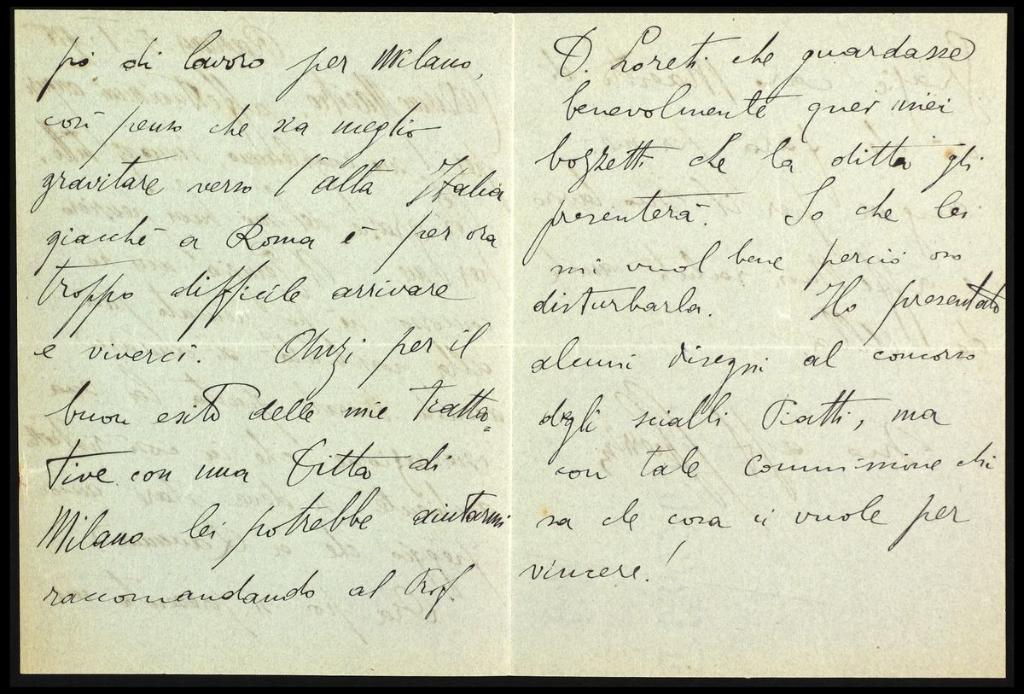 pò di lavoro per Milano,
così penso che sia meglio
gravitare verso l'alta Italia
giacchè a Roma è per ora
troppo difficile arrivare
e viverci. Anzi per il
buon esito delle mie tratta=
tive con una Ditta di
Milano lei potrebbe aiutarmi
raccomandando al Prof.
D. Loreti che guardasse
benevolmente quei miei
bozzetti che la ditta gli
presenterà. So che lei
mi vuol bene perciò oso
disturbarla. Ho presentato
alcuni disegni al concorso
degli scialli Piatti, ma
con tale Commissione chi
sa che cosa ci vuole per
vincere!